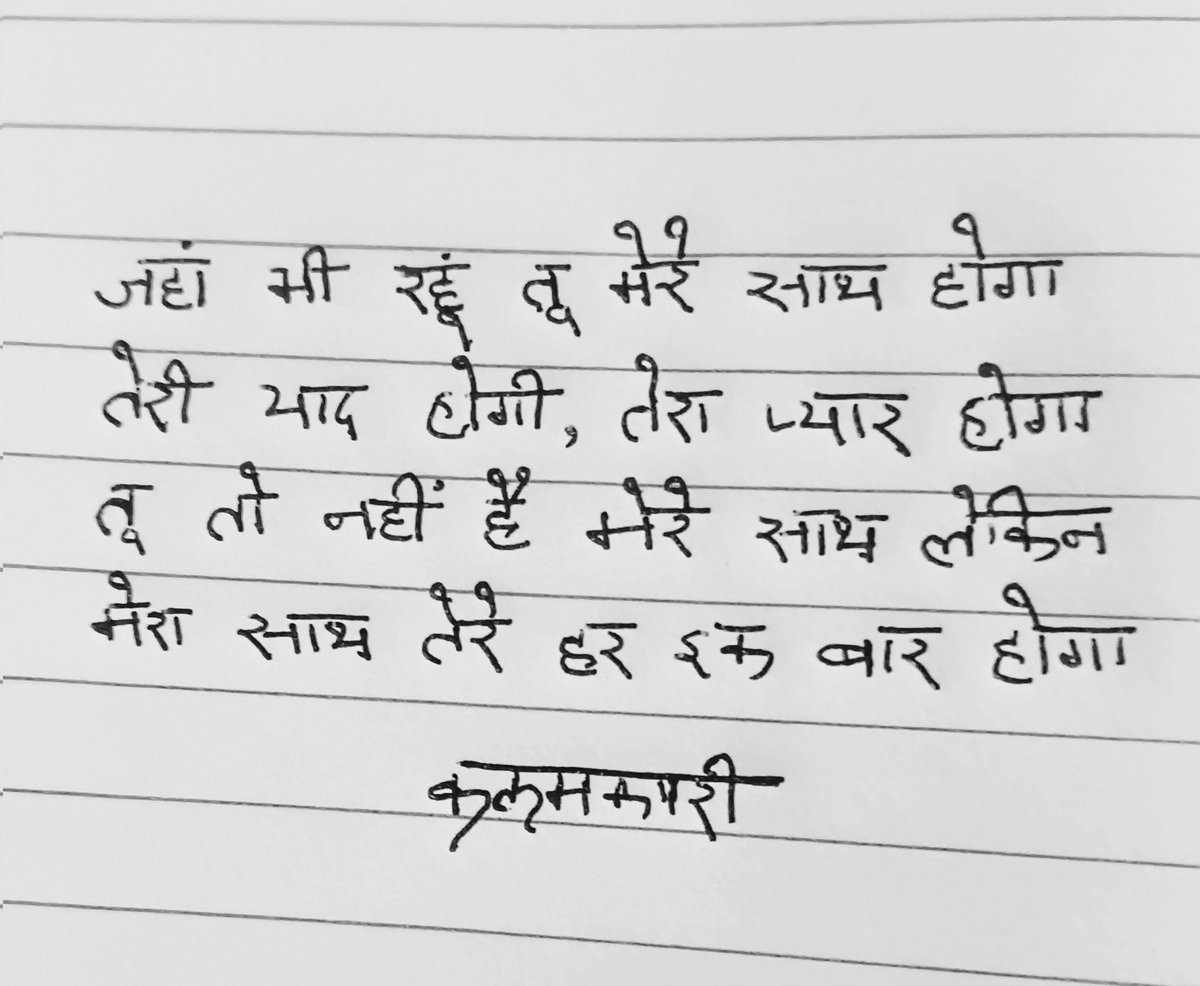 जहां भी रहूं तू मेरे साथ होगा
तेरी याद होगी, तेरा प्यार होगा
तू तो नहीं है मेरे साथ लेकिन
मेरा साथ तेरे हर इक बार होगा
कलमकारी